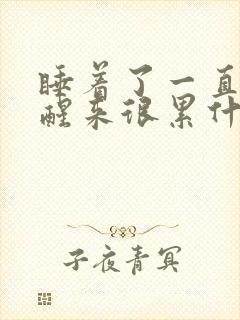 睡着了一直
醒来很累什
子夜青冥